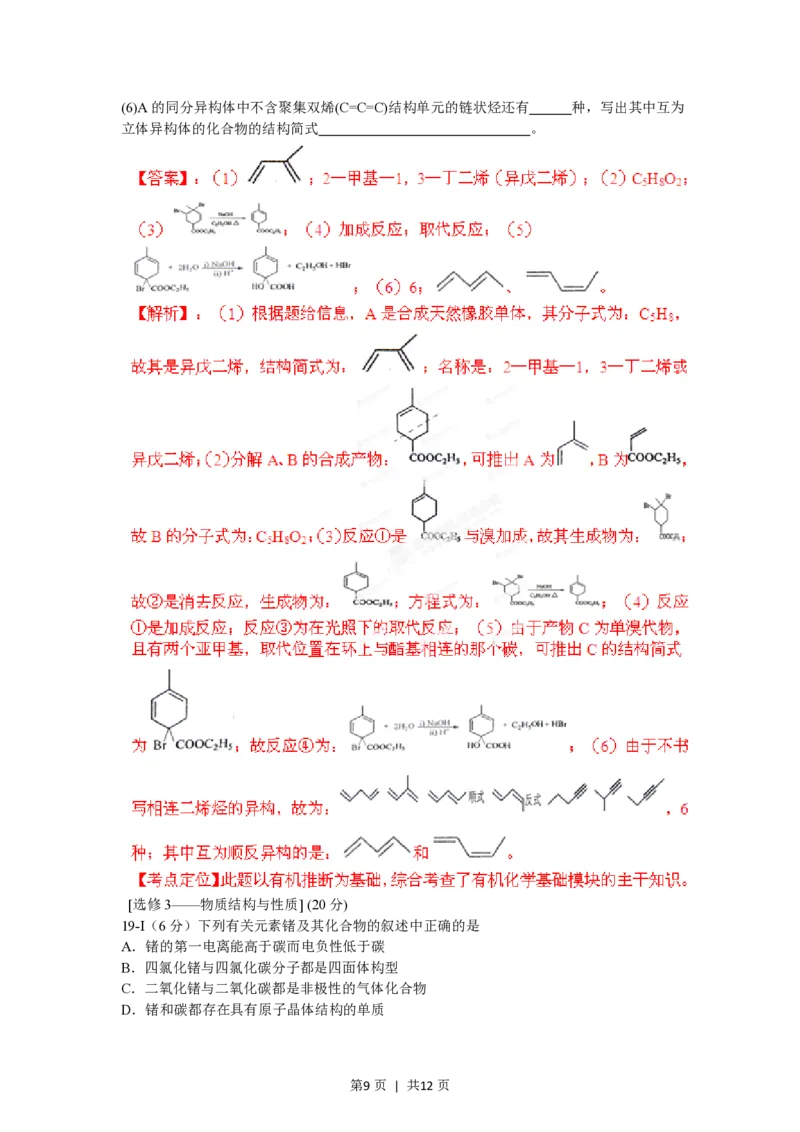 (6)A的同分异构体中不含聚集双烯(C=C=C)结构单元的链状烃还有______种，写出其中互为
立体异构体的化合物的结构简式______________________________。
【答案】：（1） ；2一甲基一1，3一丁二烯（异戊二烯）；（2）C5H8O2；
（3） Br Br COOC2H5 NaOH C2H5OH △ COOC2H5 ；（4）加成反应；取代反应；（5）
Br COOC2H5 + 2H2O i) NaOH ii) H+ HO COOH + C2H5OH + HBr ；（6）6； 、 。
【解析】：（1）根据题给信息，A是合成天然橡胶单体，其分子式为：C5H8，
故其是异戊二烯，结构简式为： ；名称是：2一甲基一1，3一丁二烯或
异戊二烯；（2）分解A、B的合成产物： COOC2H5 ，可推出A为 ，B为 COOC2H5 ，
故B的分子式为：C5H8O2；（3）反应①是 COOC2H5 与溴加成，故其生成物为： Br Br COOC2H5 ；
故②是消去反应，生成物为： COOC2H5 ；方程式为： Br Br COOC2H5 NaOH C2H5OH △ COOC2H5 ；（4）反应
①是加成反应；反应③为在光照下的取代反应；（5）由于产物C为单溴代物，
且有两个亚甲基，取代位置在环上与酯基相连的那个碳，可推出C的结构简式
为 Br COOC2H5 ；故反应④为： Br COOC2H5 + 2H2O i) NaOH ii) H+ HO COOH + C2H5OH + HBr ；（6）由于不书
写相连二烯烃的异构，故为： 顺式 反式 ，6
种；其中互为顺反异构的是： 和 。
【考点定位】此题以有机推断为基础，综合考查了有机化学基础模块的主干知识。
[选修3——物质结构与性质] (20分)
19-I（6分）下列有关元素锗及其化合物的叙述中正确的是
A．锗的第一电离能高于碳而电负性低于碳
B．四氯化锗与四氯化碳分子都是四面体构型
C．二氧化锗与二氧化碳都是非极性的气体化合物
D．锗和碳都存在具有原子晶体结构的单质
第9页 | 共12页